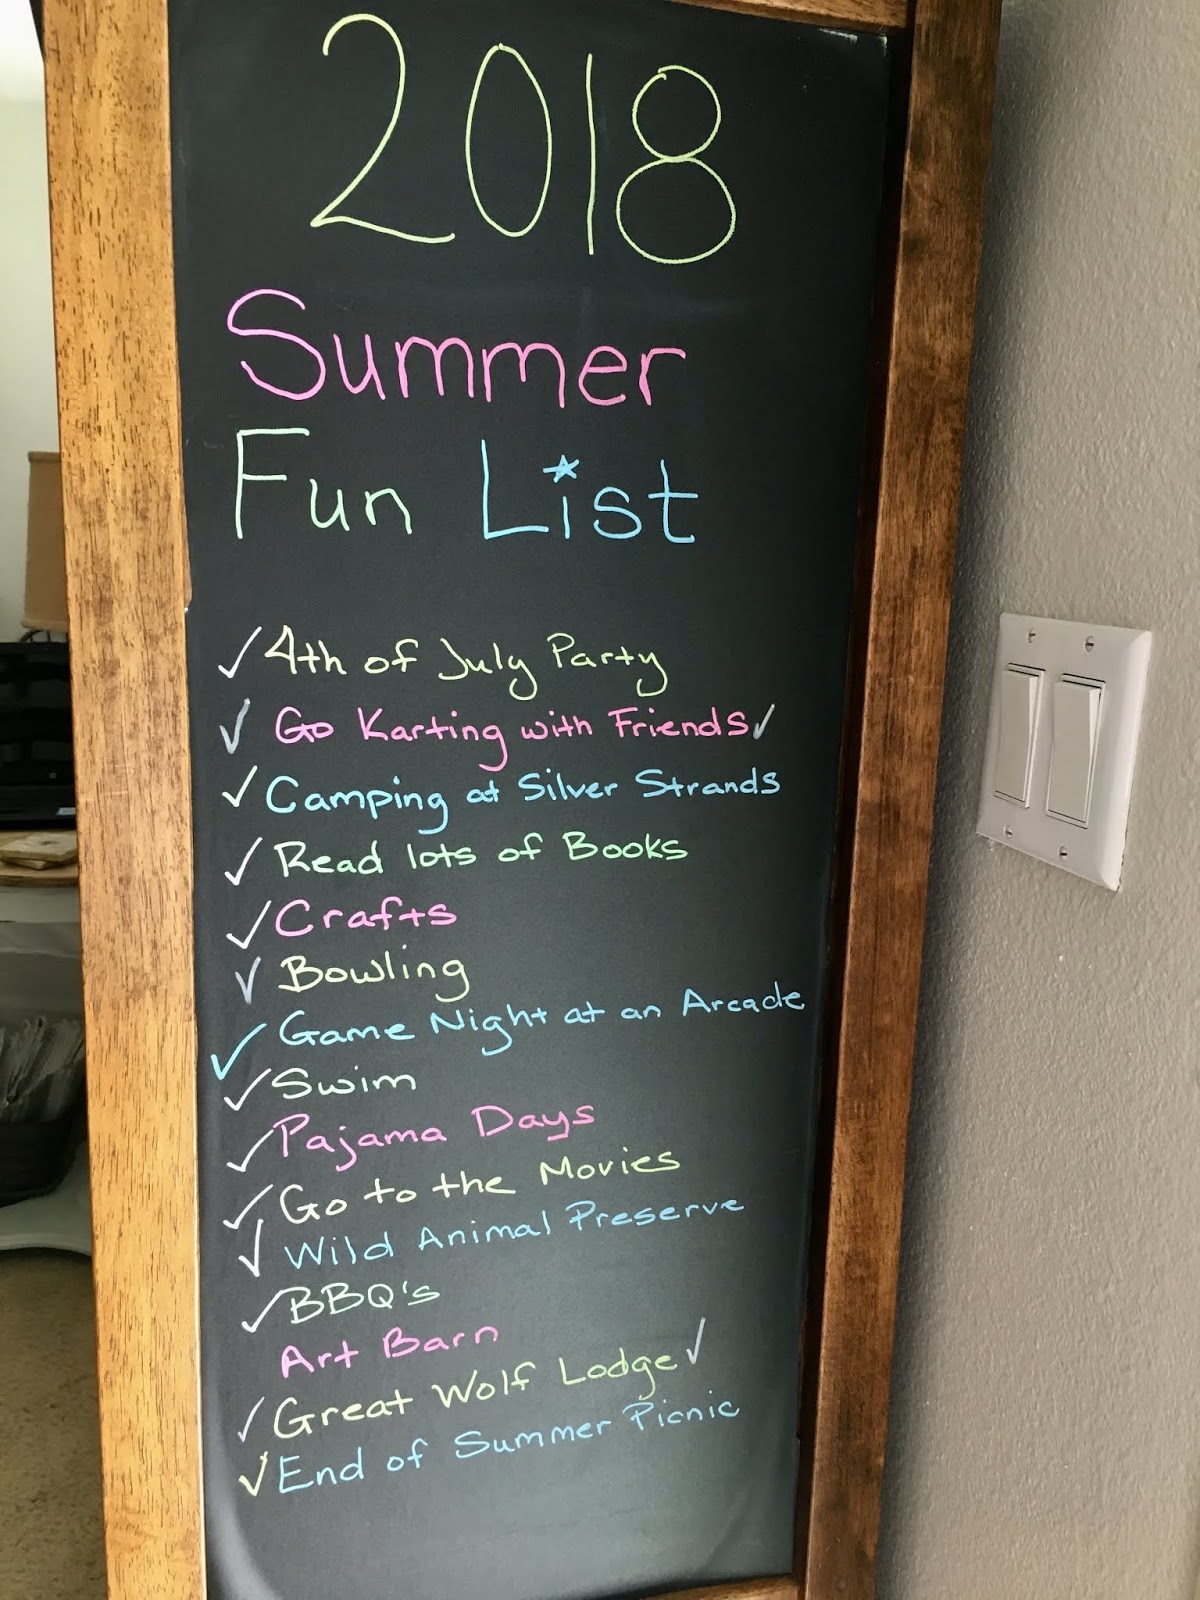 2018
Summer
Fun List
✓ 4th of July Party
✓ Go Karting with Friends ✓
✓ Camping at Silver Strands
✓ Read lots of Books
✓ Crafts
✓ Bowling
✓ Game Night at an Arcade
✓ Swim
✓ Pajama Days
✓ Go to the Movies
✓ Wild Animal Preserve
✓ BBQ's
Art Barn
✓ Great Wolf Lodge ✓
✓ End of Summer Picnic